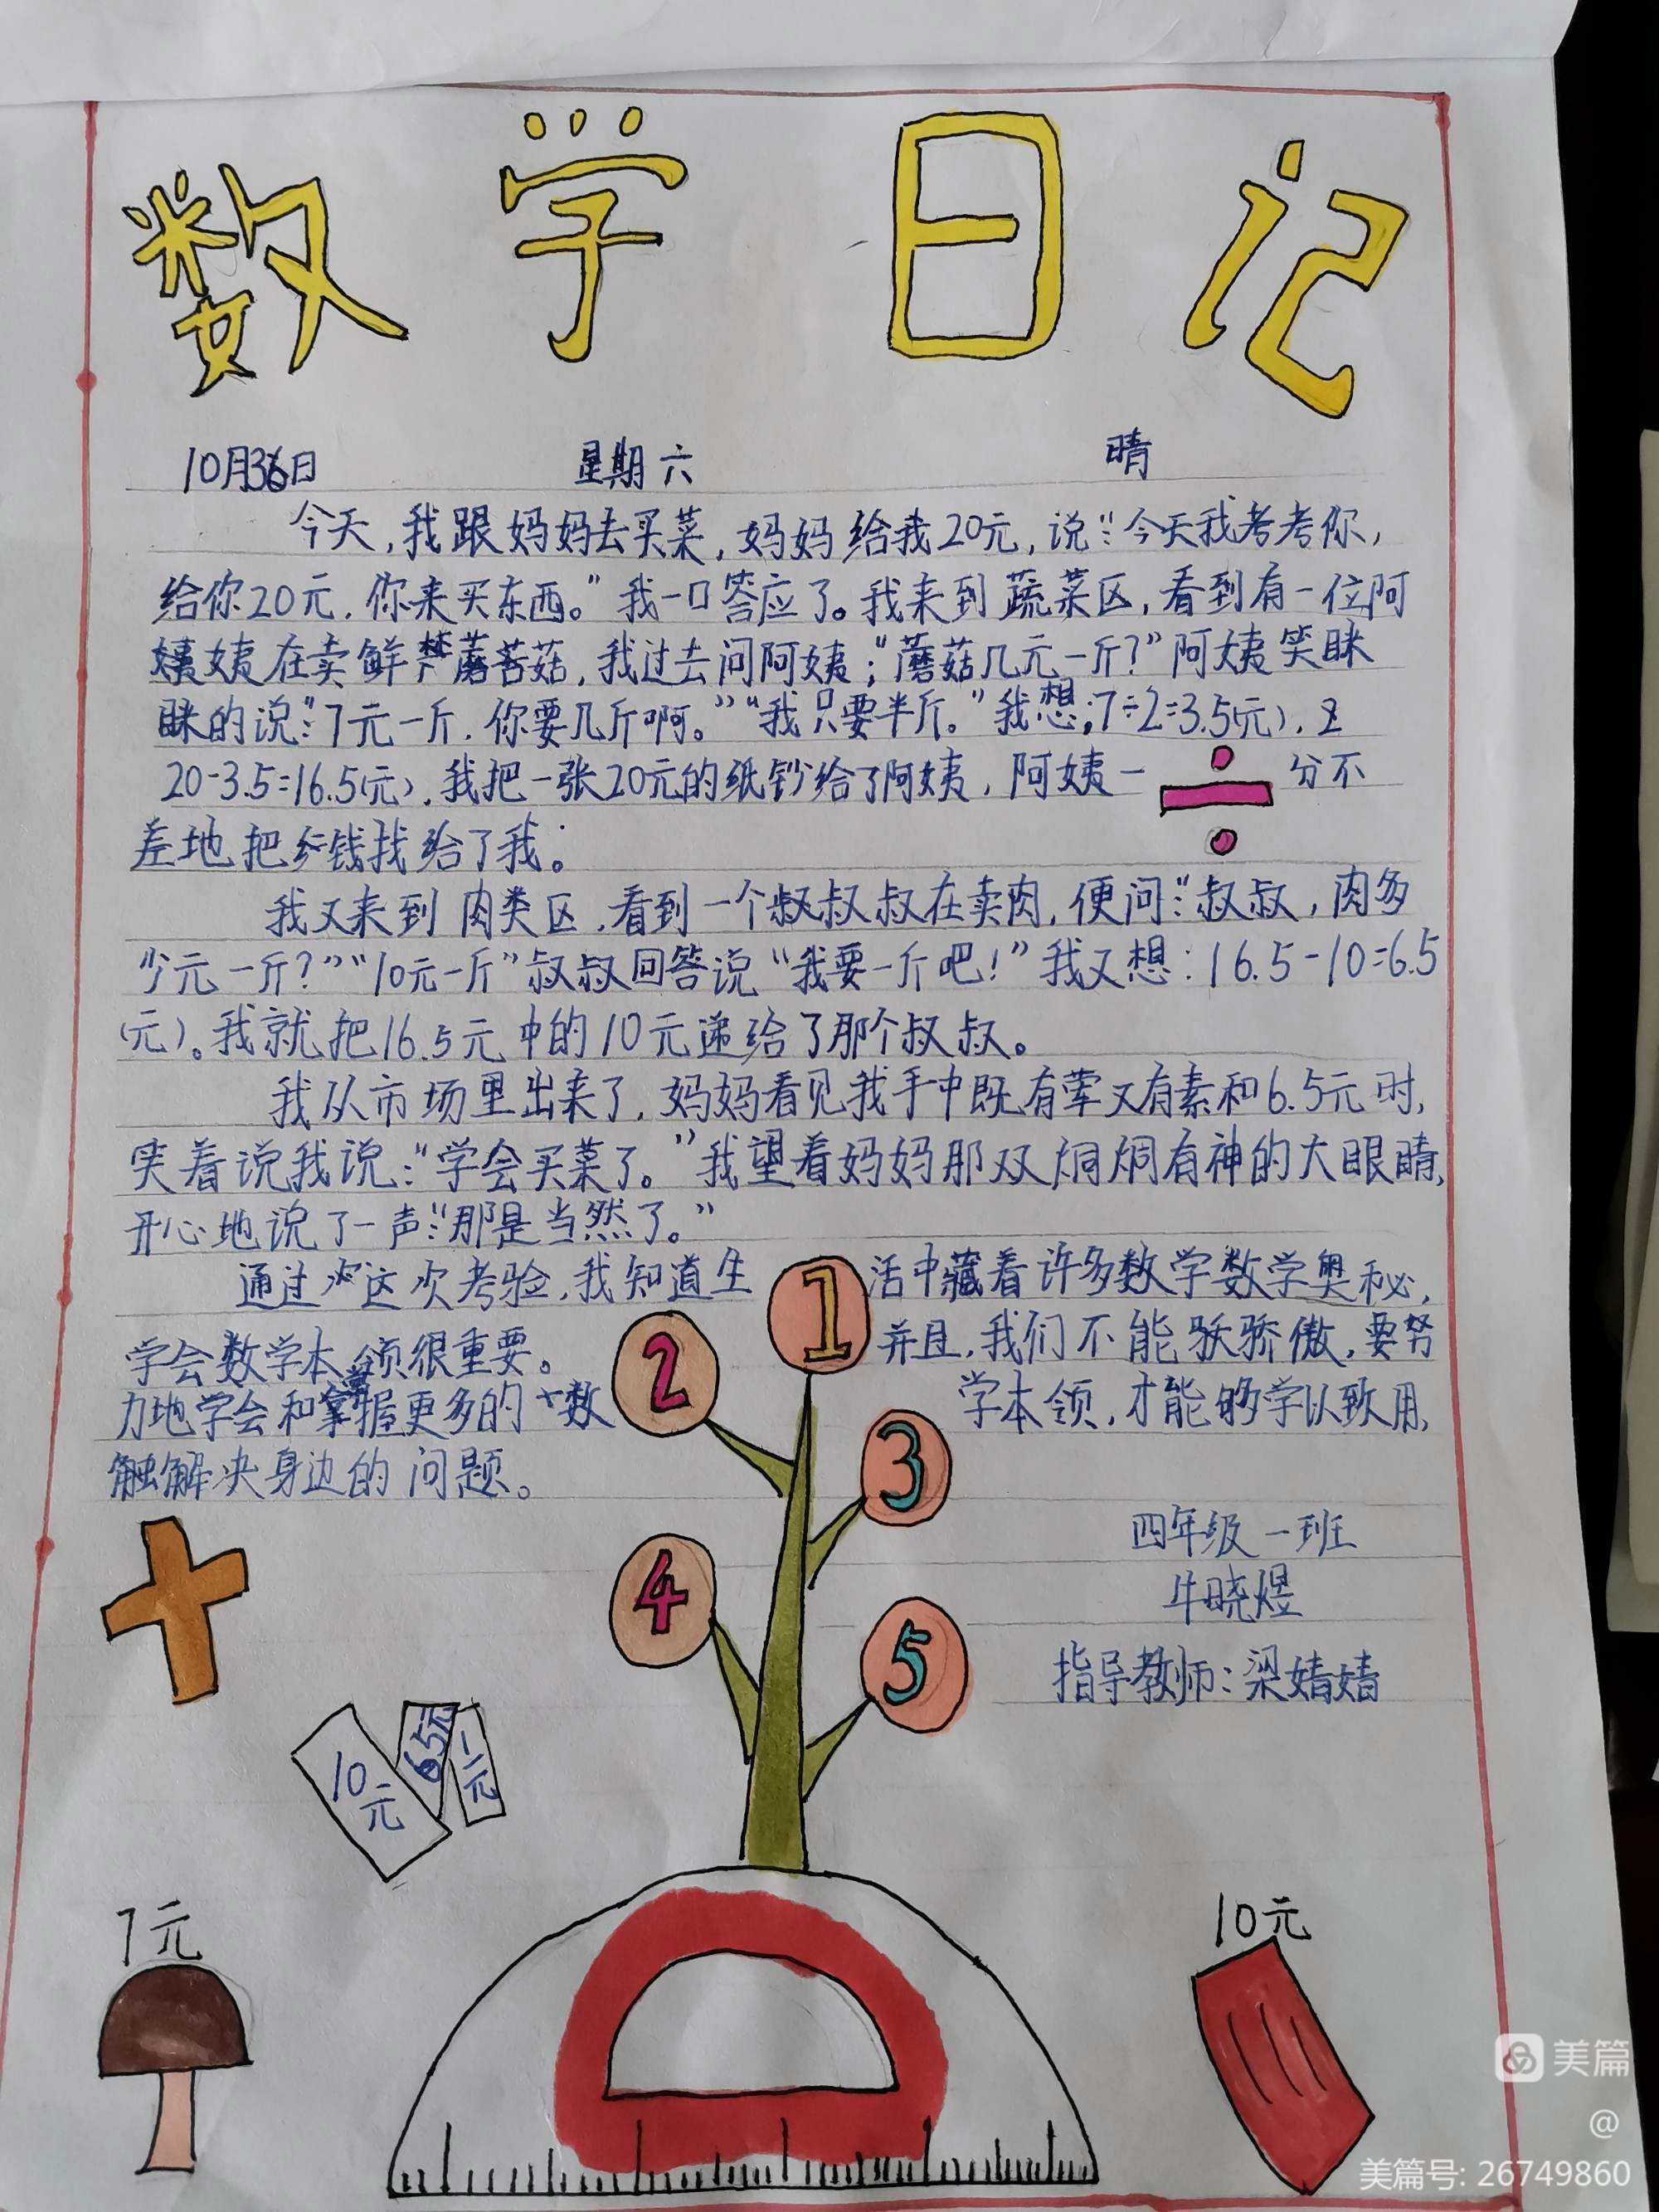 数学日记
10月36日 星期六 晴
今天,我跟妈妈去买菜,妈妈给我20元,说:“今天我考考你,
给你20元,你来买东西。”我一口答应了。我来到蔬菜区,看到有一位阿
姨姨在卖鲜蘑菇,我过去问阿姨:“蘑菇几元一斤?”阿姨笑眯
眯的说:“7元一斤,你要几斤啊。”“我只要半斤。”我想;7÷2=3.5(元),
20-3.5=16.5(元),我把一张20元的纸钞给了阿姨,阿姨一÷分不
差地把钱找给了我。
我又来到肉类区,看到一个叔叔在卖肉,便问:“叔叔,肉多
少元一斤?”“10元一斤”叔叔回答说“我要一斤吧!”我又想:16.5-10=6.5
(元)。我就把16.5元中的10元递给了那个叔叔。
我从市场里出来了,妈妈看见我手中既有荤又有素和6.5元时,
笑着说我说:“学会买菜了。”我望着妈妈那双炯炯有神的大眼睛,
开心地说了一声:“那是当然了。”
通过这次考验,我知道生活中藏着许多数学数学奥秘,
学会数学本领很重要。并且,我们不能骄傲,要努
力地学会和掌握更多的数学本领,才能够学以致用,
解决身边的问题。
1
2
3
4
5
四年级一班
牛晓煜
指导教师:梁婧婧
10元
6.5元
一元
7元
10元
美篇
@
美篇号: 26749860